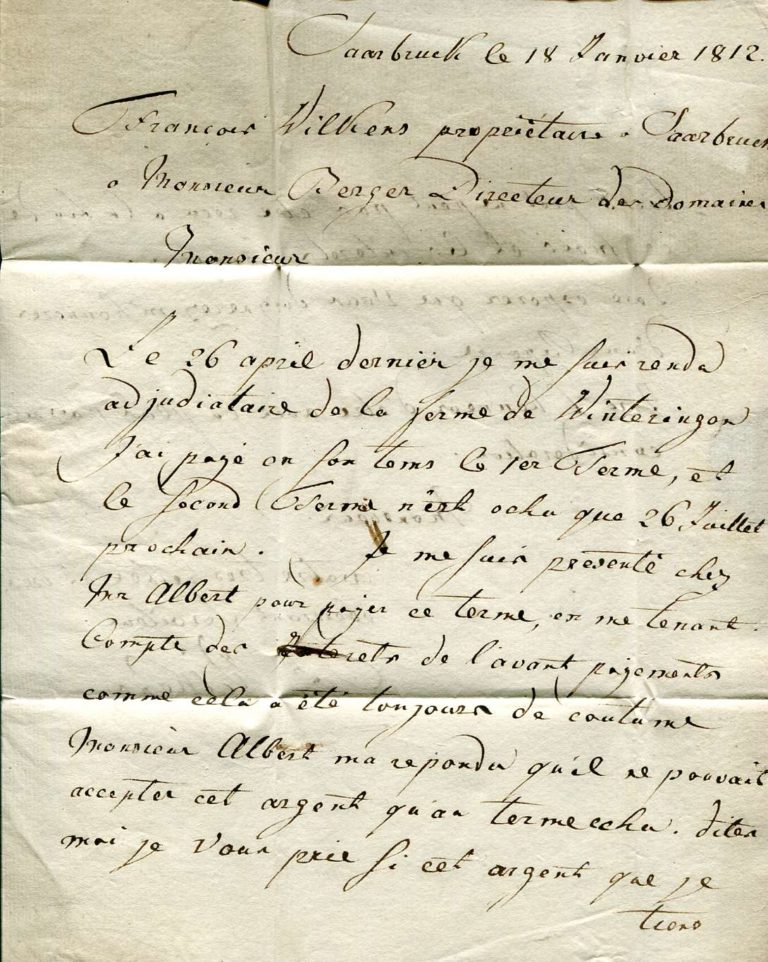 Saarbruck le 18 Janvier 1812.
François Wilkens propriétaire a Saarbruck
a Monsieur Berger Directeur des Domaines
Monsieur
Le 26 april dernier je me suis rendu
adjudiataire de la ferme de Winteringon
J'ai payé en son tems le 1er Terme, et
le second Terme n'ért echu que 26 Juillet
prochain. Je me suis présenté chez
Mr Albert pour payer ce terme, en me tenant
Compte des Interets de l'avant payements
comme cela a été toujours de coutume
Monsieur Albert ma repondu qu'il ne pouvait
accepter cet argent qu'au terme echu. dites
moi je vous prie si cet argent que je
tiens